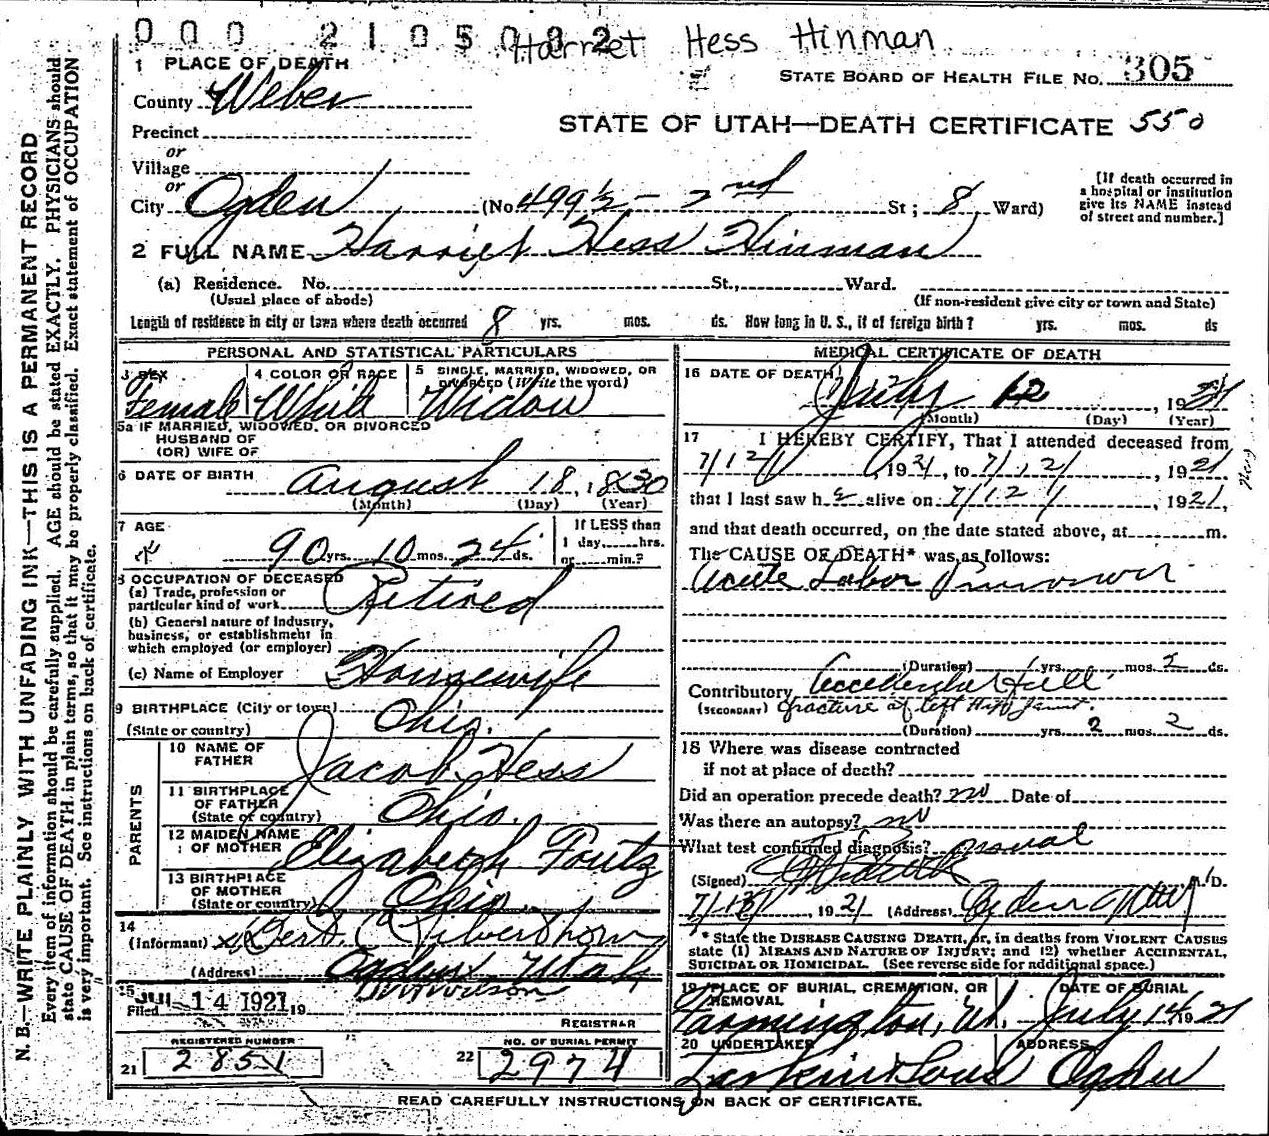 000 2105082
Harriet Hess Hinman
1 PLACE OF DEATH
STATE BOARD OF HEALTH FILE NO. 305
County Weber
STATE OF UTAH—DEATH CERTIFICATE 550
Precinct
or
Village
or
City Ogden (No 499½ - 2nd St; 8 Ward)
[If death occurred in
a hospital or institution
give its NAME instead
of street and number.]
2 FULL NAME Harriet Hess Hinman
(a) Residence. No. St., Ward.
(Usual place of abode) (If non-resident give city or town and State)
Length of residence in city or town where death occurred 8 yrs. mos. ds. How long in U. S., if of foreign birth? yrs. mos. ds
PERSONAL AND STATISTICAL PARTICULARS
3 SEX 4 COLOR OR RACE 5 SINGLE, MARRIED, WIDOWED, OR
DIVORCED (Write the word)
Female White Widow
5a IF MARRIED, WIDOWED, OR DIVORCED
HUSBAND OF
(OR) WIFE OF
6 DATE OF BIRTH August 18, 1830
(Month) (Day) (Year)
7 AGE If LESS than
1 day, hrs.
90 yrs. 10 mos. 24 ds. or min.?
8 OCCUPATION OF DECEASED
(a) Trade, profession or
particular kind of work Retired
(b) General nature of Industry,
business, or establishment in
which employed (or employer)
(c) Name of Employer Housewife
9 BIRTHPLACE (City or town)
(State or country) Ohio.
PARENTS
10 NAME OF
FATHER Jacob Hess
11 BIRTHPLACE
OF FATHER
(State or country) Ohio.
12 MAIDEN NAME
OF MOTHER Elizabeth Foutz
13 BIRTHPLACE
OF MOTHER
(State or country) Ohio.
14
(Informant)
(Address) Ogden, Utah
15
Filed JUL 14 1921 19
REGISTRAR
REGISTERED NUMBER NO. OF BURIAL PERMIT
21 2851 22 2974
MEDICAL CERTIFICATE OF DEATH
16 DATE OF DEATH
July 12, 1921
(Month) (Day) (Year)
17 I HEREBY CERTIFY, That I attended deceased from
7/12/ 1921, to 7/12/, 1921
that I last saw h alive on 7/12/, 1921,
and that death occurred, on the date stated above, at m.
The CAUSE OF DEATH* was as follows:
Acute Lobar
(Duration) yrs. mos. 2 ds.
Contributory Accidental Fall
(SECONDARY) fracture of left Hip Joint.
(Duration) yrs. 2 mos. 2 ds.
18 Where was disease contracted
if not at place of death?
Did an operation precede death? no Date of
Was there an autopsy? no
What test confirmed diagnosis?
(Signed) M.D.
1921 (Address) Ogden
* State the DISEASE CAUSING DEATH, or, in deaths from VIOLENT CAUSES
state (1) MEANS AND NATURE OF INJURY; and (2) whether ACCIDENTAL,
SUICIDAL OR HOMICIDAL. (See reverse side for additional space.)
19 PLACE OF BURIAL, CREMATION, OR
REMOVAL DATE OF BURIAL
Farmington, Ut. July 14 1921
20 UNDERTAKER ADDRESS
Larkin & Sons Ogden
READ CAREFULLY INSTRUCTIONS ON BACK OF CERTIFICATE.
N. B.—WRITE PLAINLY WITH UNFADING INK—THIS IS A PERMANENT RECORD
Every item of information should be carefully supplied. AGE should be stated EXACTLY. PHYSICIANS should
state CAUSE OF DEATH in plain terms, so that it may be properly classified. Exact statement of OCCUPATION
is very important. See instructions on back of certificate.